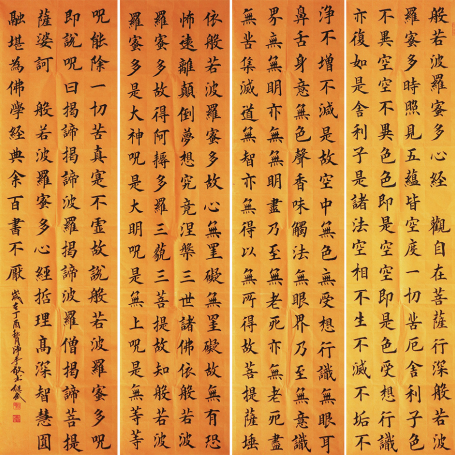 般若波羅蜜多心經 觀自在菩薩行深般若波
羅蜜多時照見五蘊皆空度一切苦厄舍利子色
不異空空不異色色即是空空即是色受想行識
亦復如是舍利子是諸法空相不生不滅不垢不
淨不增不減是故空中無色無受想行識無眼耳
鼻舌身意無色聲香味觸法無眼界乃至無意識
界無無明亦無無明盡乃至無老死亦無老死盡
無苦集滅道無智亦無得以無所得故菩提薩埵
依般若波羅蜜多故心無罣礙無罣礙故無有恐
怖遠離顛倒夢想究竟涅槃三世諸佛依般若波
羅蜜多故得阿耨多羅三藐三菩提故知般若波
羅蜜多是大神呪是大明呪是無上呪是無等等
呪能除一切苦真實不虛故說般若波羅蜜多呪
即說呪曰揭諦揭諦波羅揭諦波羅僧揭諦菩提
薩婆訶 般若波羅蜜多心經哲理高深智慧圓
融堪為佛學經典余百書不厭 歲在丁酉